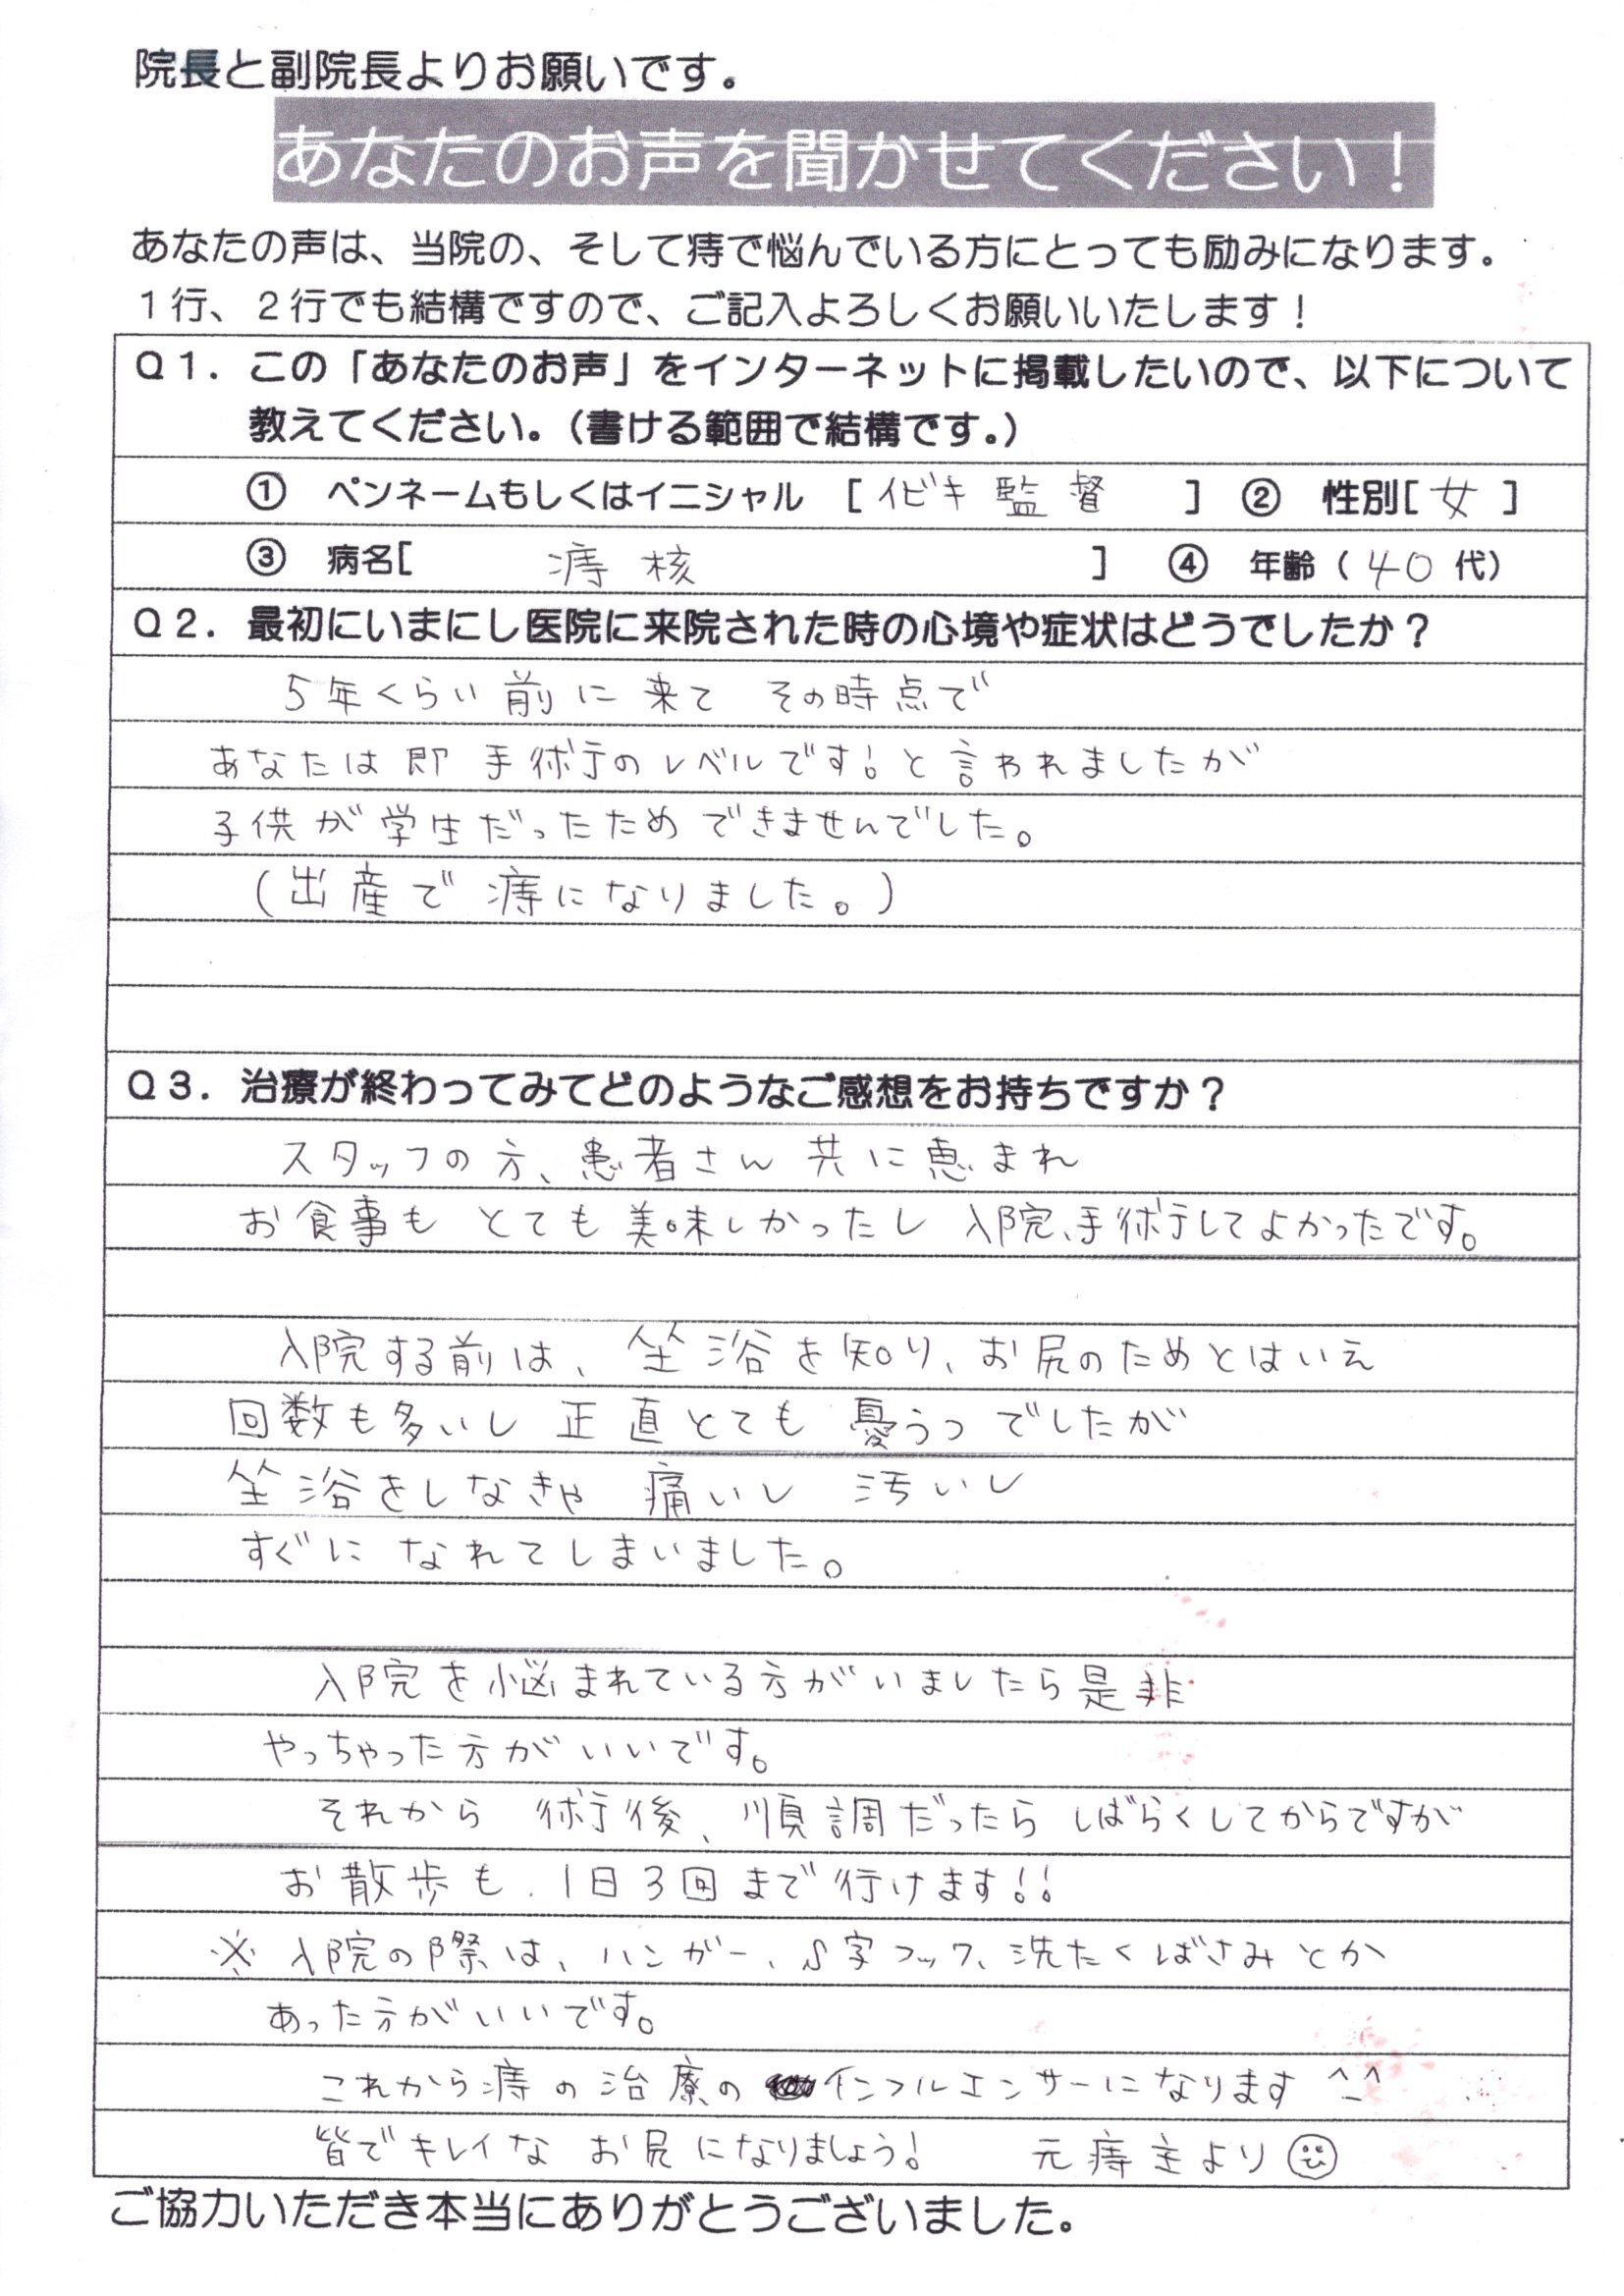 院長と副院長よりお願いです。
あなたのお声を聞かせてください！
あなたの声は、当院の、そして痔で悩んでいる方にとっても励みになります。
１行、２行でも結構ですので、ご記入よろしくお願いいたします！
Ｑ１．この「あなたのお声」をインターネットに掲載したいので、以下について
教えてください。（書ける範囲で結構です。）
① ペンネームもしくはイニシャル [イビキ監督] ② 性別[女]
③ 病名[痔核] ④ 年齢（40代）
Ｑ２．最初にいまにし医院に来院された時の心境や症状はどうでしたか？
5年くらい前に来て その時点で
あなたは即 手術のレベルです!と言われましたが
子供が学生だったため できませんでした。
(出産で 痔になりました。)
Ｑ３．治療が終わってみてどのようなご感想をお持ちですか？
スタッフの方、患者さん 共に恵まれ
お食事も とても美味しかったし 入院、手術してよかったです。
入院する前は、坐浴を知り、お尻のためとはいえ
回数も多いし 正直とても 憂うつ でしたが
坐浴をしなきゃ 痛いし 汚いし
すぐに なれてしまいました。
入院を悩まれている方がいましたら是非
やっちゃった方がいいです。
それから 術後、順調だったら しばらくしてからですが
お散歩も、1日3回まで行けます!!
※ 入院の際は、ハンガー、S字フック、洗たくばさみとか
あった方がいいです。
これから痔の治療の インフルエンサーになります ^_^
皆でキレイな お尻になりましょう! 元痔主より☺
ご協力いただき本当にありがとうございました。